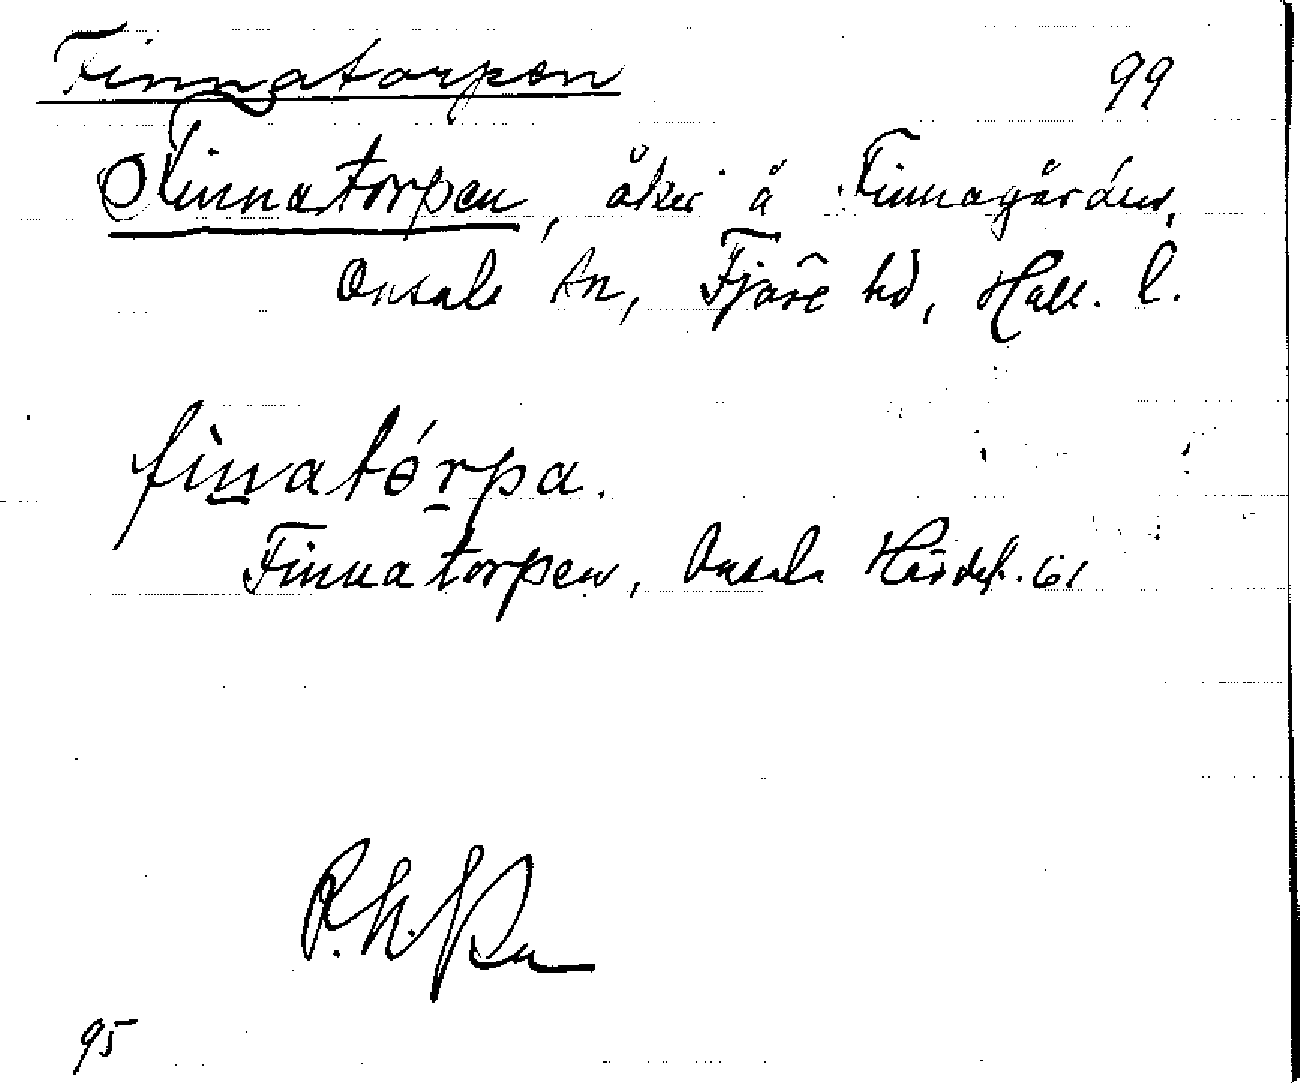 Finnatorpen 99
Finnatorpen, åker å Finnagården,
Onsala sn, Fjäre hd, Hall. l.
fìnatórpa.
Finnatorpen, Onsala Härdsk. 61
95